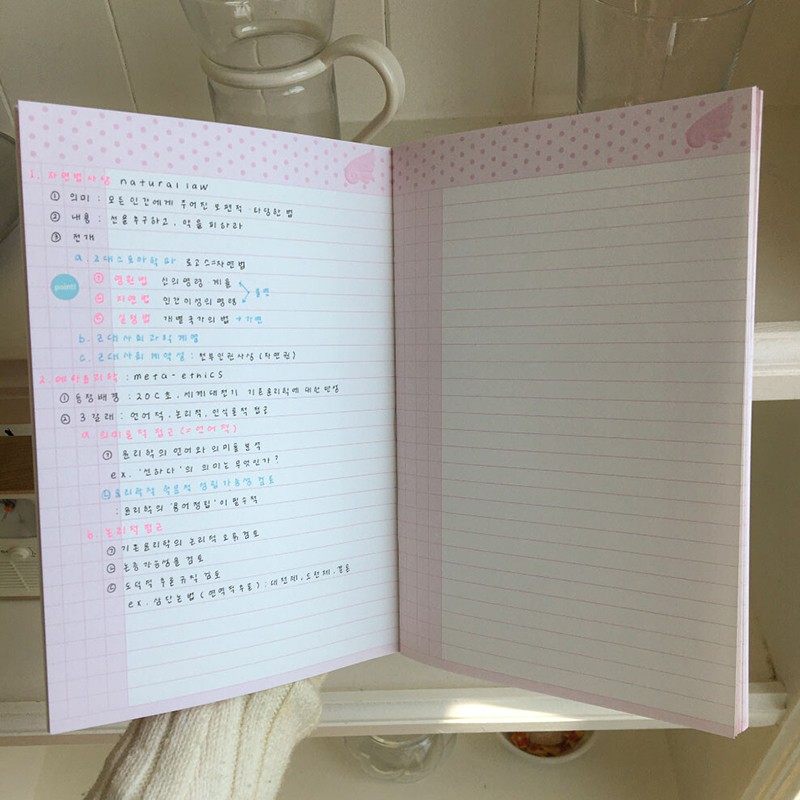 1. 자연법사상 natural law
① 의미 : 모든 인간에게 주어진 보편적 타당한 법
② 내용 : 선을 추구하고, 악을 피하라
③ 전개
a. 고대스토아학파 로고스=자연법
point!
㉠ 영원법 신의 명령 계율
㉡ 자연법 인간이성의 명령 불변
㉢ 실정법 개별국가의 법 → 가변
b. 근대사회과학계열
c. 근대사회계약설 : 천부인권사상 (자연권)
2. 메타윤리학 : meta-ethics
① 등장배경 : 20C초, 세계대전기 기존윤리학에 대한 반성
② 3갈래 : 언어적, 논리적, 인식론적 접근
a 의미론적 접근 (= 언어적)
㉠ 윤리학의 언어와 의미를 분석
ex. '선하다'의 의미는 무엇인가?
㉡ 윤리학적 학문적 성립가능성 검토
: 윤리학의 '용어정립'이 필수적
b 논리적 접근
㉠ 기존윤리학의 논리적 오류 검토
㉡ 논증가능성을 검토
㉢ 도덕적 추론규칙 검토
ex. 삼단논법 (연역적추론) : 대전제, 소전제, 결론